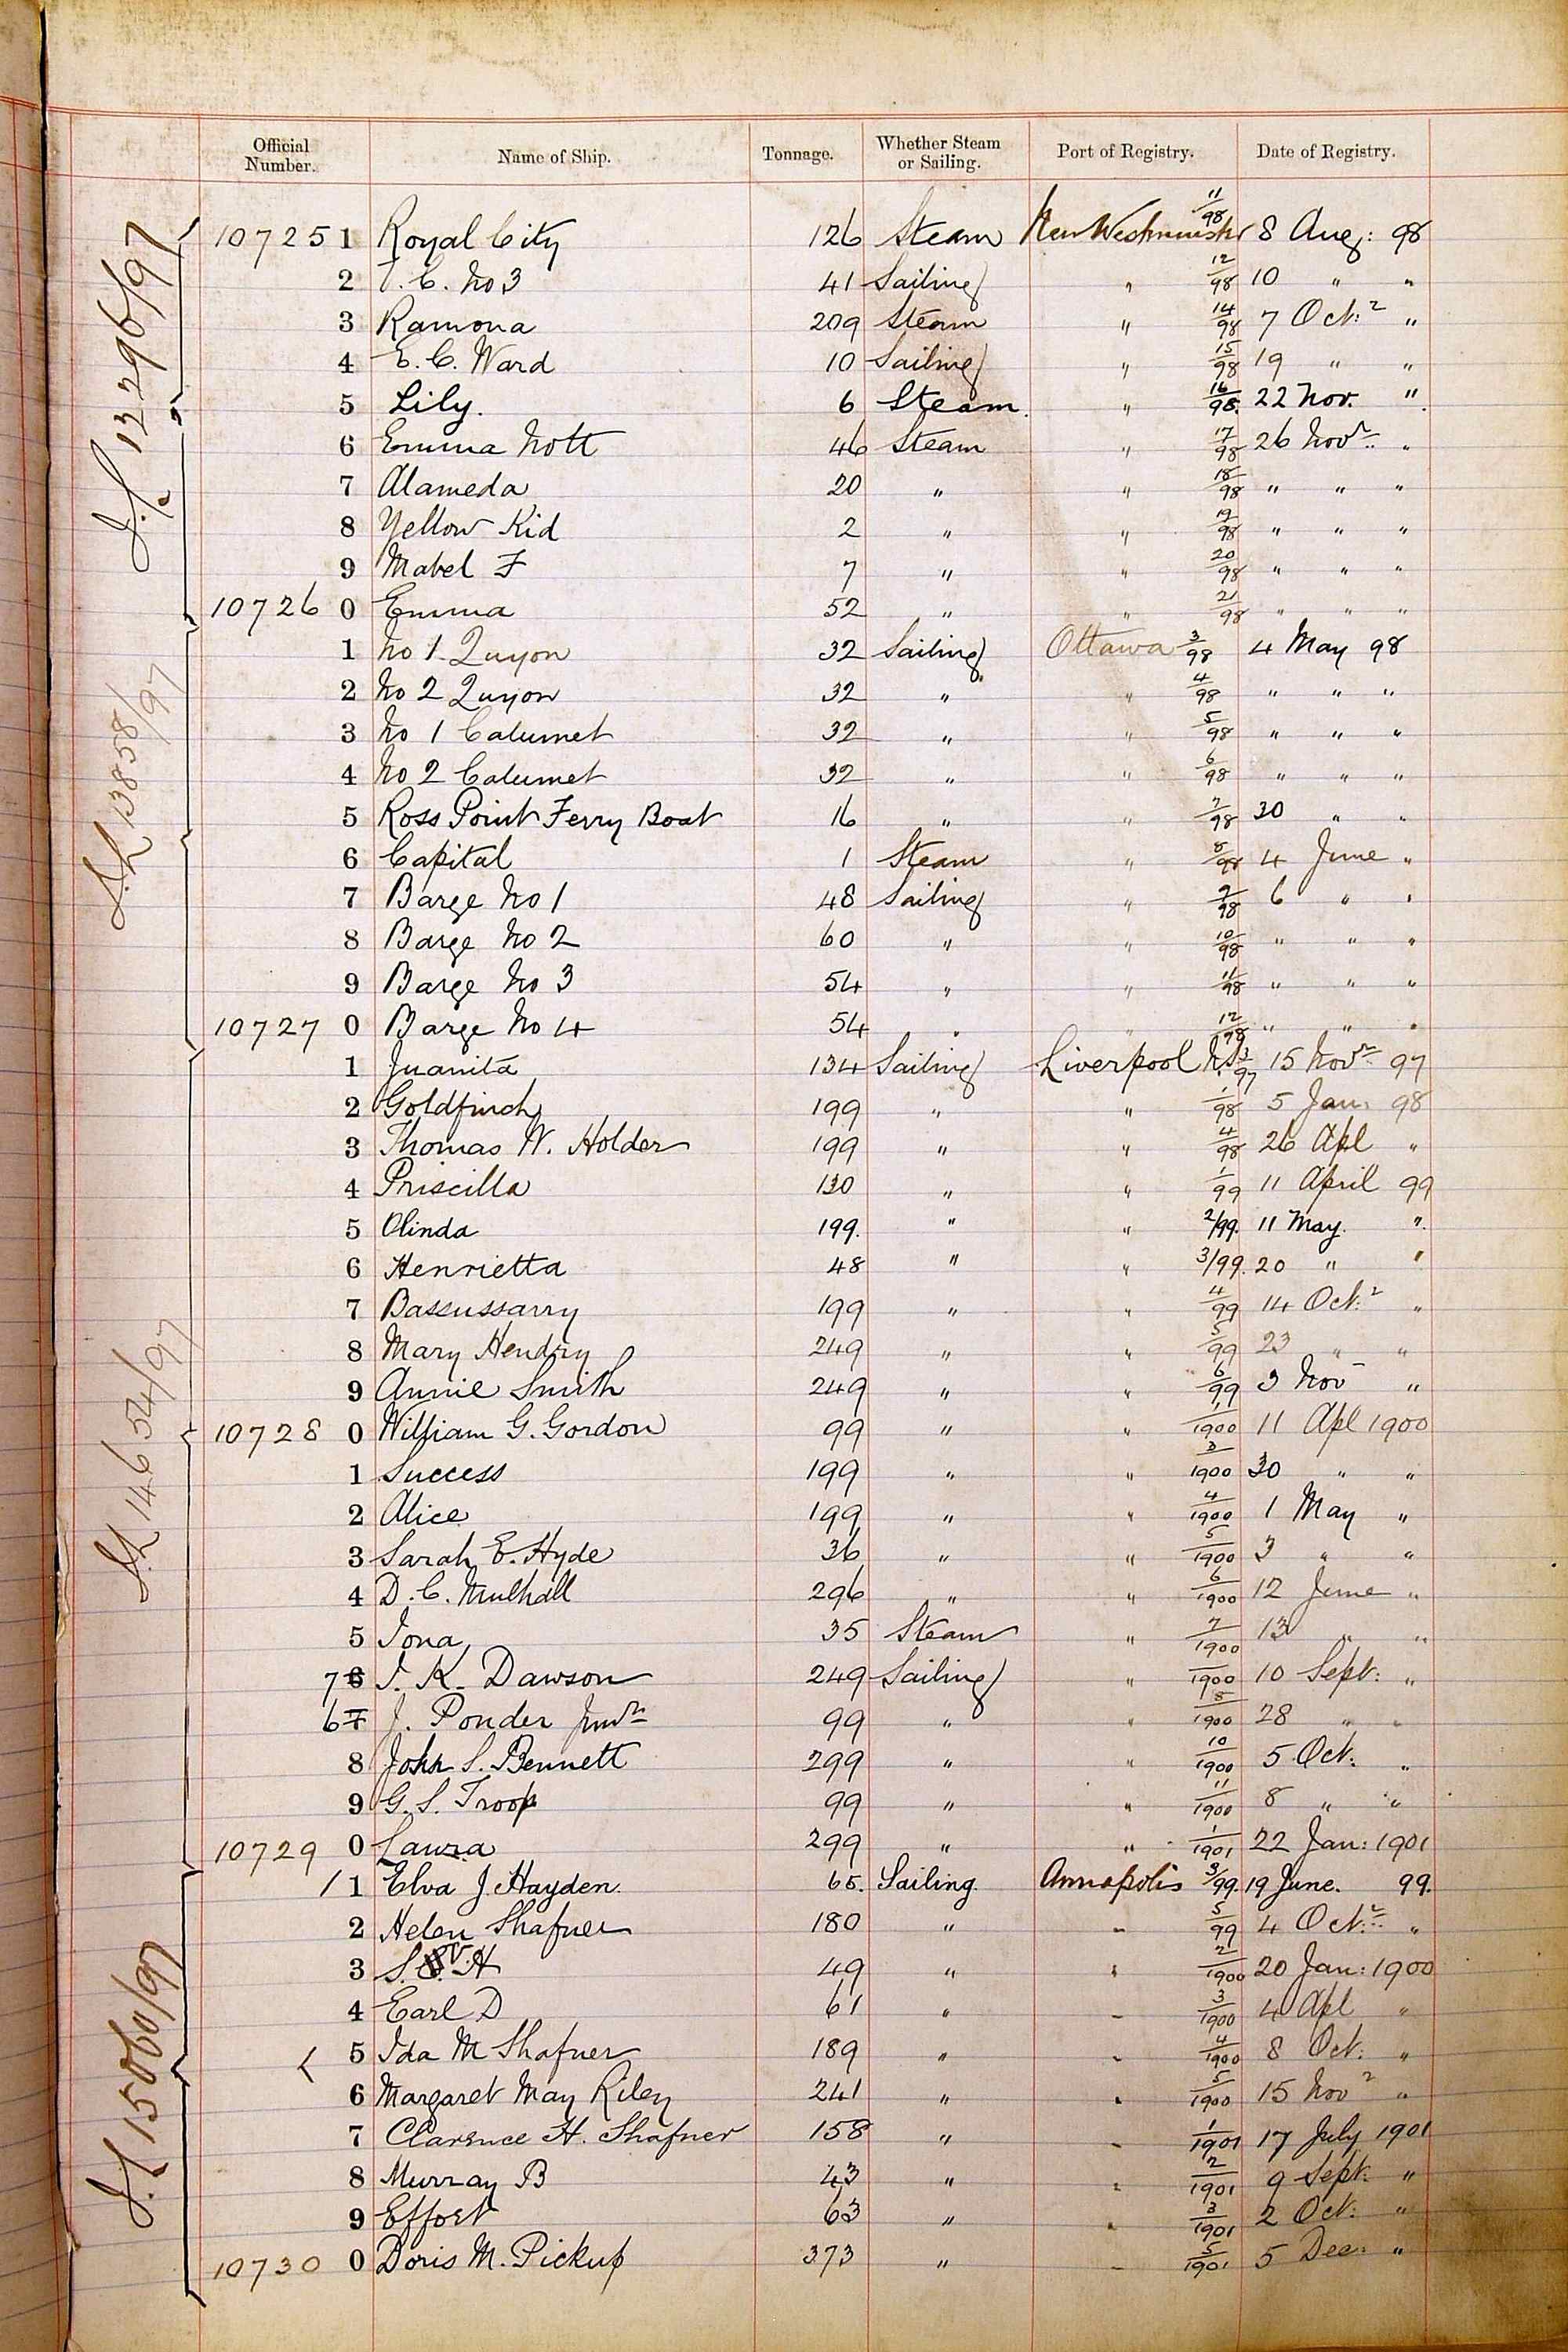 Official Number. Name of Ship. Tonnage. Whether Steam or Sailing. Port of Registry. Date of Registry.
10725 1 Royal City 126 Steam New Westminster 11/98 8 Aug: 98
2 T. C. No 3 41 Sailing " 12/98 10 " "
3 Ramona 209 Steam " 14/98 7 Oct:r "
4 E. C. Ward 10 Sailing " 15/98 19 " "
5 Lily. 6 Steam. " 16/98. 22 Nov. "
6 Emma Nott 46 Steam " 17/98 26 Novr. "
7 Alameda 20 " " 18/98 " " "
8 Yellow Kid 2 " " 19/98 " " "
9 Mabel F 7 " " 20/98 " " "
10726 0 Emma 52 " " 21/98 " " "
1 No 1 Quyon 32 Sailing Ottawa 3/98 4 May 98
2 No 2 Quyon 32 " " 4/98 " " "
3 No 1 Calumet 32 " " 5/98 " " "
4 No 2 Calumet 32 " " 6/98 " " "
5 Ross Point Ferry Boat 16 " " 7/98 30 " "
6 Capital 1 Steam " 8/98 4 June "
7 Barge No 1 48 Sailing " 9/98 6 " "
8 Barge No 2 60 " " 10/98 " " "
9 Barge No 3 54 " " 11/98 " " "
10727 0 Barge No 4 54 " " 12/98 " " "
1 Juanita 134 Sailing Liverpool NS 3/97 15 Novr 97
2 Goldfinch 199 " " 1/98 5 Jan: 98
3 Thomas W. Holder 199 " " 4/98 26 Apl "
4 Priscilla 130 " " 1/99 11 April 99
5 Olinda 199. " " 2/99. 11 May. ".
6 Henrietta 48 " " 3/99. 20 " "
7 Bassussarry 199 " " 4/99 14 Oct:r "
8 Mary Hendry 249 " " 5/99 23 " "
9 Annie Smith 249 " " 6/99 3 Nov "
10728 0 William G. Gordon 99 " " 1/1900 11 Apl 1900
1 Success 199 " " 3/1900 30 " "
2 Alice 199 " " 4/1900 1 May "
3 Sarah E. Hyde 36 " " 5/1900 3 " "
4 D. C. Mulhall 296 " " 6/1900 12 June "
5 Iona 35 Steam " 7/1900 13 " "
7 6 J. K. Dawson 249 Sailing " 1900 10 Sept: "
6 7 J. Ponder Junr 99 " " 8/1900 28 " "
8 John S. Bennett 299 " " 10/1900 5 Oct: "
9 G. S. Troop 99 " " 11/1900 8 " "
10729 0 Laura 299 " " 1/1901 22 Jan: 1901
/ 1 Elva J. Hayden. 65. Sailing. Annapolis 3/99. 19 June. 99.
2 Helen Shafner 180 " " 5/99 4 Oct:r "
3 S. V. H 49 " " 2/1900 20 Jan: 1900
4 Earl D 61 " " 3/1900 4 Apl "
5 Ida M Shafner 189 " " 4/1900 8 Oct: "
6 Margaret May Riley 241 " " 5/1900 15 Novr "
7 Clarence H. Shafner 158 " " 1/1901 17 July 1901
8 Murray B 43 " " 2/1901 9 Sept: "
9 Effort 63 " " 3/1901 2 Oct: "
10730 0 Doris M. Pickup 373 " " 5/1901 5 Dec: "
12296/97
13858/97
14654/97
15060/97